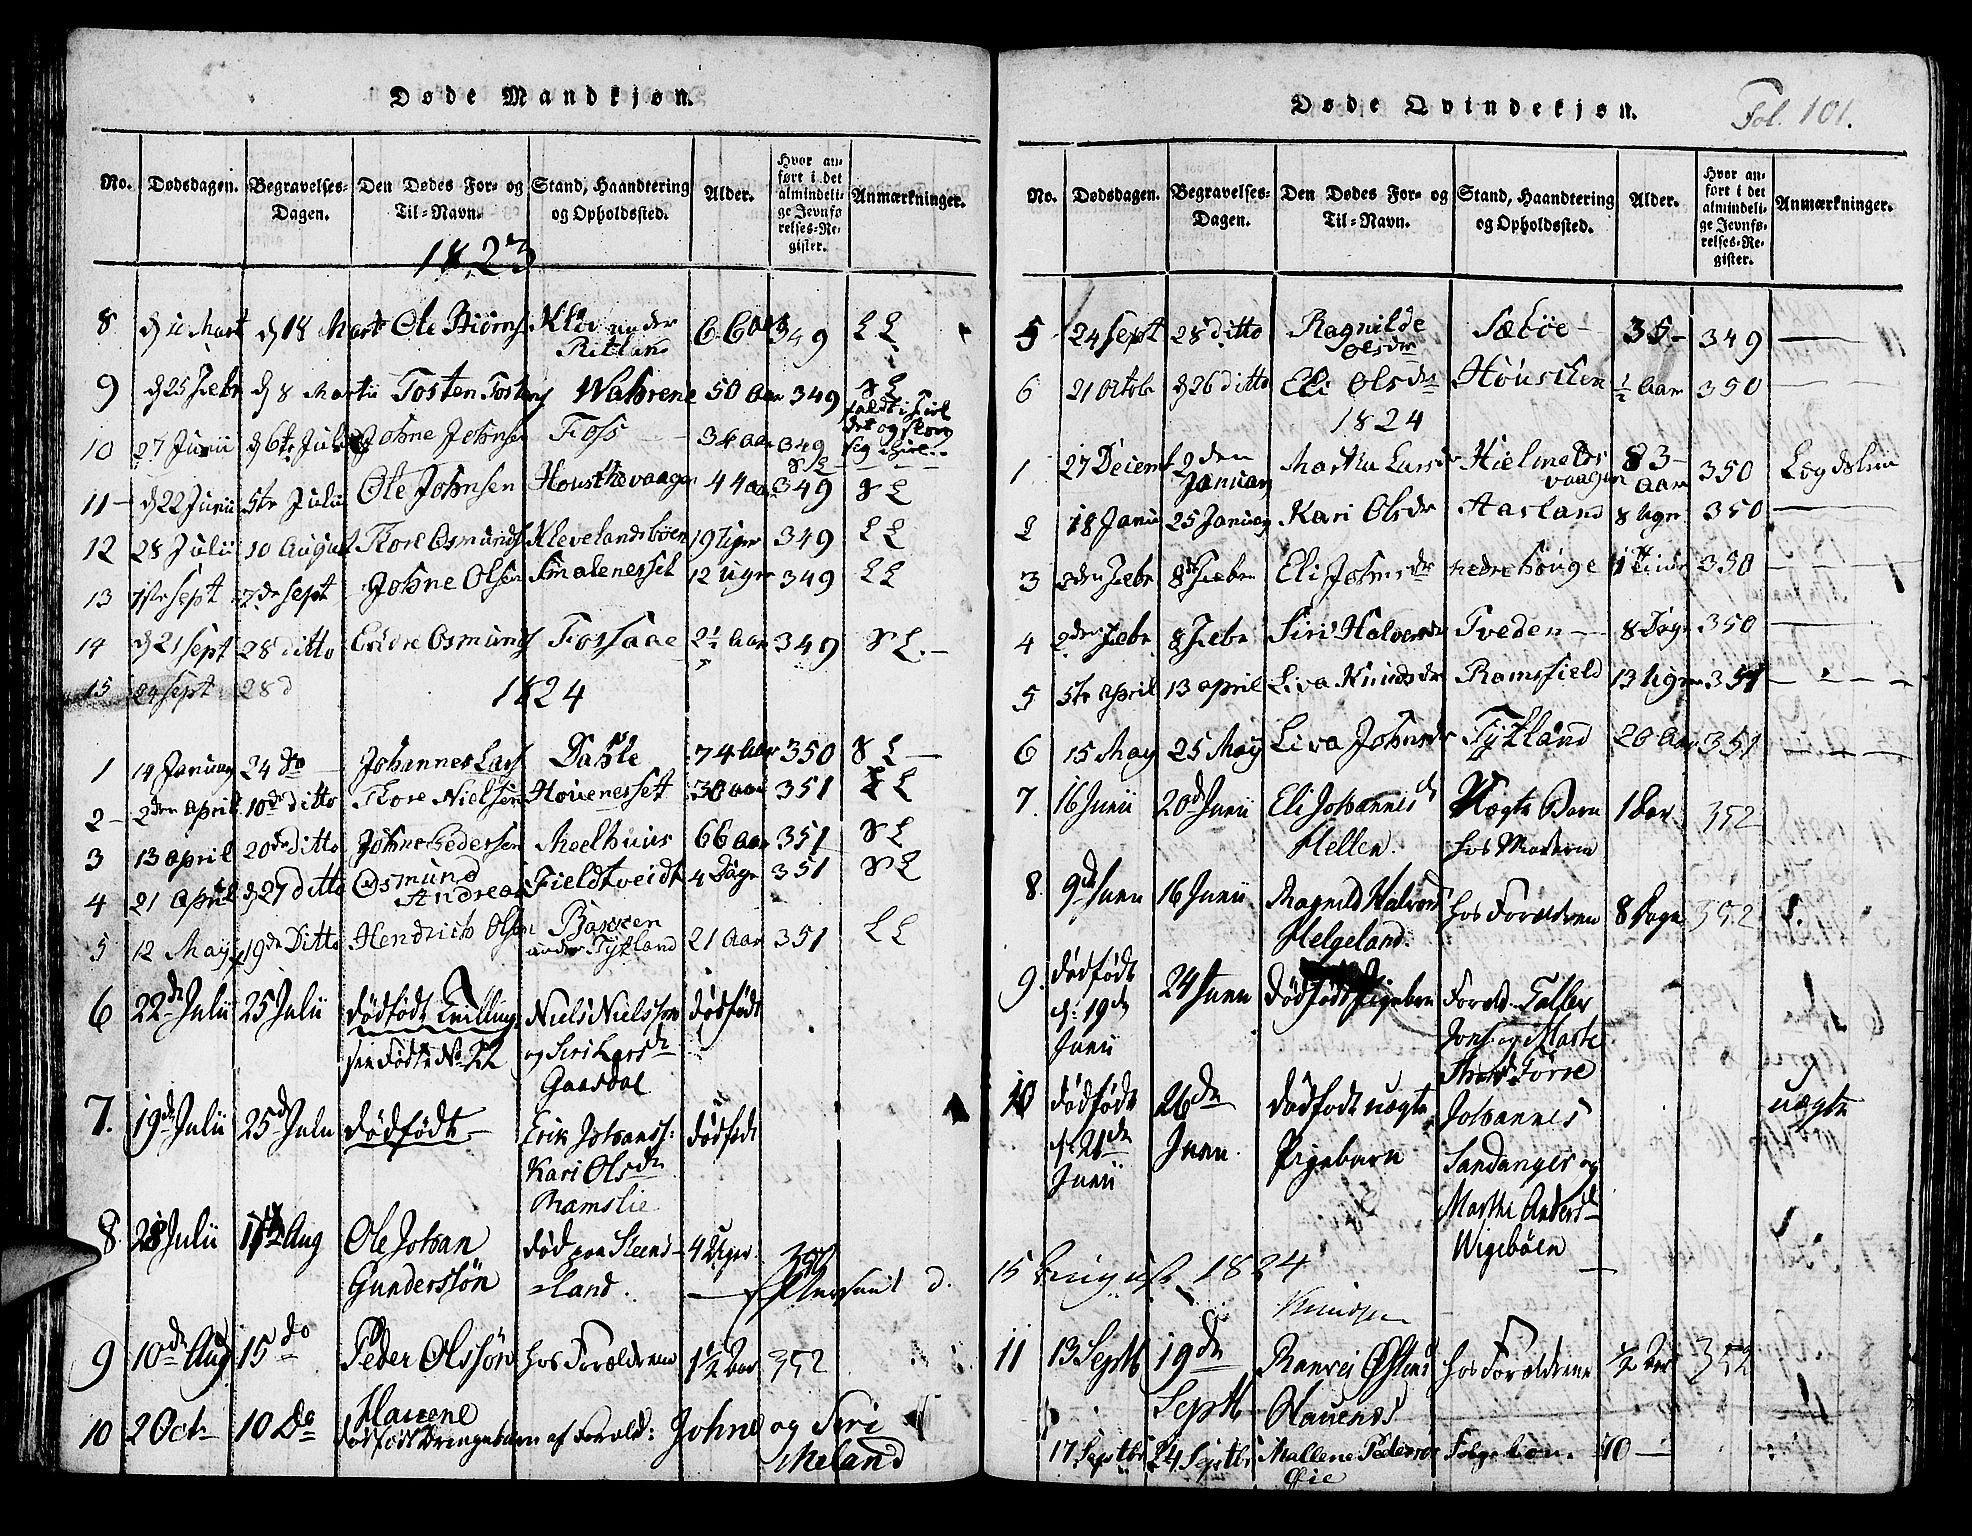 Døde Mandkjøn.
No. Dødsdagen. Begravelses-Dagen. Den Dødes For- og Til-Navn. Stand, Haandtering og Opholdssted. Alder. Hvor anført i det almindelige Jevnførelses-Register. Anmærkninger.
1823
8 d 11 Mart d 18 Mart Ole Kløv under Ritland 349 L L
9 d 25 Febr d 8 Martii Tosten 50 Aar 349 S L
10 27 Junii d 6te Julii Johne Johnsen Foss 349
11 d 22 Junii 5te Julii Ole Johnsen 44 Aar 349 S L
12 28 Julii 10 August Tore Osmunds Klevelandsbøen 19 Uger 349 L L
13 1ste Sept 7de Sept Johne Olsen Smalenesset 12 Uger 349 L L
14 d 21 Sept 28 ditto Endre Osmunds Fossaae 2½ Aar 349 S L.
15 24 Sept 28 d
1824
1 14 January 24 do Johannes Lars Dahle 74 Aar 350 S L
2 2den April 10de ditto Tore Nielsen Houenesset 30 Aar 351 L L
3 13 April 20de ditto Johne Pedersen Meelhuus 66 Aar 351 S L
4 21 April d 27 ditto Osmund Andreas Fieldtveidt 4 Dage 351 S L
5 12 May 19de Ditto Hendrich Olsen Backen under Tytland 21 Aar 351 L L
6 22de Julii 25 Julii dødfødt Tvilling
see Fødte No 22
Niels Nielssøn
og Siri Larsdr
Gaasdal
dødfødt
7. 19de Julii 25de Julii dødfødt
Erik Johanss:
Kari Olsdr
Ramslie
dødfødt
8. 28 Julii Aug Ole Johan
Gunderssøn
død paa Steens-
land.
4 Uger
9 10de Aug 15 do Peder Olssøn
Hauene
hos Forældrene 1½ Aar 352
10 2 Oct 10 Do dødfødt Drengebarn af Foræld: Johne og Siri
Meland
Døde Qvindekjøn.
Fol. 101.
No. Dødsdagen. Begravelses-Dagen. Den Dødes For- og Til-Navn. Stand, Haandtering og Opholdssted. Alder. Hvor anført i det almindelige Jevnførelses-Register. Anmærkninger.
5 24 Sept 28 ditto Ragnilde Olsdr Sæbøe 35 349
6 21 Octob d 26 ditto Eli Olsdr Housken ½ Aar 350
1824
1 27 Decemb 2den January Martha Larsdr Hielmelds vaagen 83 Aar 350
2 18 Janu 25 January Kari Olsdr Aasland 8 Uger 350
3 2den Febr 8de Febr Eli Johnsdr nedre Houge 350
4 2den Febr 8 Febr Siri Halversdr Tveden 8 Dage 350
5 5te April 13 April Liva Knudsdr Ramsfield 13 Uger 351
6 15 May 25 May Liva Johnsdr Tytland 20 Aar 351
7. 16 Junii 20de Junii Eli Johannesd
Helten.
Uægte Barn
hos Moderen
1 Aar 352
8. 9de Junii 16 Junii Magnild Halvors
Helgeland.
hos Forældrene 8 Dage 352
9. dødfødt
d. 19de
Junii
24 Junii dødfødt Pigebarn
Foræld. Taller
Jons. og Marte
Førre
10 dødfødt
d. 21de
Junii
26de
Junii
dødfødt uægte
Pigebarn
Johannes
Sandanger og
Marthe Andersd
Wigebøen
uægte
15 August 1824
Knudsen
11 13 Septb 19de
Septb
Ranvei Østensd
Hauenes
hos Forældrene ½ Aar 352
17 Septbr 24 Septbr Mallene Pedersdr
Øie
10